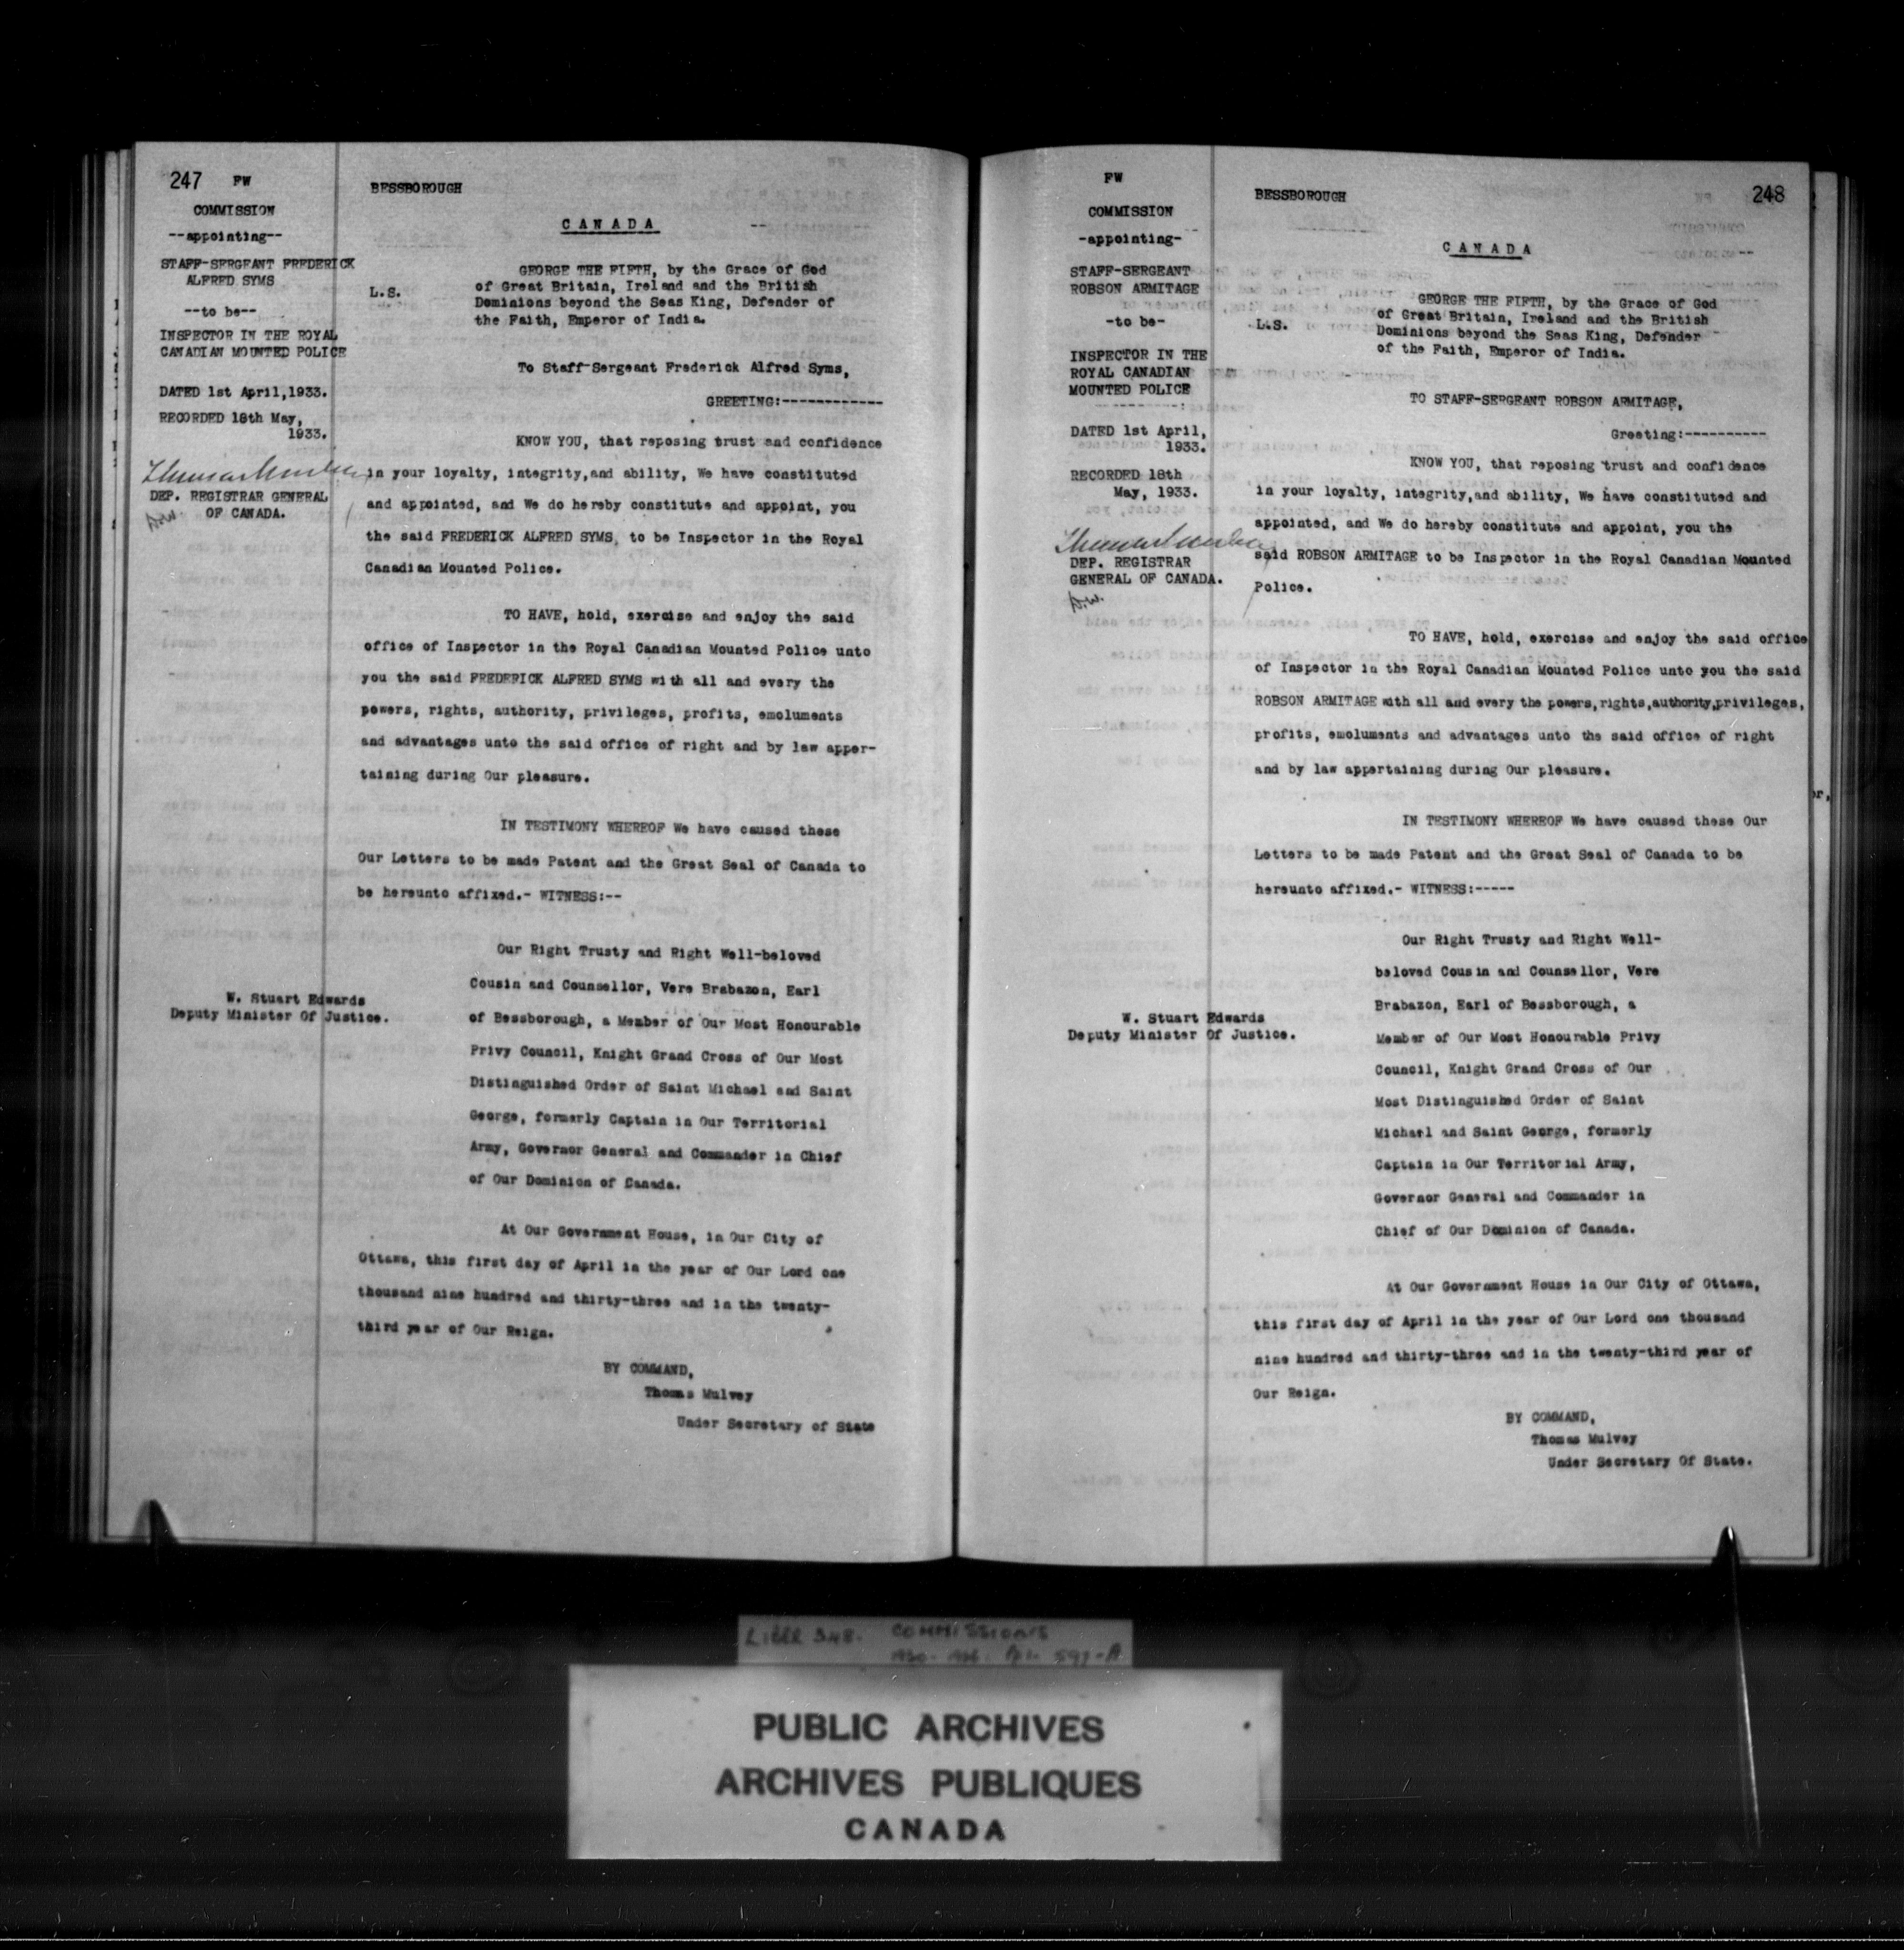 247 FW
COMMISSION
--appointing--
STAFF-SERGEANT FREDERICK
ALFRED SYMS
--to be--
INSPECTOR IN THE ROYAL
CANADIAN MOUNTED POLICE
DATED 1st April,1933.
RECORDED 18th May,
1933.
DEP. REGISTRAR GENERAL
OF CANADA.
W. Stuart Edwards
Deputy Minister Of Justice.
BESSBOROUGH
CANADA --
L.S.
GEORGE THE FIFTH, by the Grace of God
of Great Britain, Ireland and the British
Dominions beyond the Seas King, Defender of
the Faith, Emperor of India.
To Staff-Sergeant Frederick Alfred Syms,
GREETING:------------
KNOW YOU, that reposing trust and confidence
in your loyalty, integrity,and ability, We have constituted
and appointed, and We do hereby constitute and appoint, you
the said FREDERICK ALFRED SYMS, to be Inspector in the Royal
Canadian Mounted Police.
TO HAVE, hold, exercise and enjoy the said
office of Inspector in the Royal Canadian Mounted Police unto
you the said FREDERICK ALFRED SYMS with all and every the
powers, rights, authority, privileges, profits, emoluments
and advantages unto the said office of right and by law apper-
taining during Our pleasure.
IN TESTIMONY WHEREOF We have caused these
Our Letters to be made Patent and the Great Seal of Canada to
be hereunto affixed.- WITNESS:--
Our Right Trusty and Right Well-beloved
Cousin and Counsellor, Vere Brabazon, Earl
of Bessborough, a Member of Our Most Honourable
Privy Council, Knight Grand Cross of Our Most
Distinguished Order of Saint Michael and Saint
George, formerly Captain in Our Territorial
Army, Governor General and Commander in Chief
of Our Dominion of Canada.
At Our Government House, in Our City of
Ottawa, this first day of April in the year of Our Lord one
thousand nine hundred and thirty-three and in the twenty-
third year of Our Reign.
BY COMMAND,
Thomas Mulvey
Under Secretary of State
FW
COMMISSION
-appointing-
STAFF-SERGEANT
ROBSON ARMITAGE
-to be-
INSPECTOR IN THE
ROYAL CANADIAN
MOUNTED POLICE
DATED 1st April,
1933.
RECORDED 18th
May, 1933.
DEP. REGISTRAR
GENERAL OF CANADA.
W. Stuart Edwards
Deputy Minister Of Justice.
BESSBOROUGH 248
CANADA
L.S.
GEORGE THE FIFTH, by the Grace of God
of Great Britain, Ireland and the British
Dominions beyond the Seas King, Defender
of the Faith, Emperor of India.
TO STAFF-SERGEANT ROBSON ARMITAGE,
Greeting:----------
KNOW YOU, that reposing trust and confidence
in your loyalty, integrity,and ability, We have constituted and
appointed, and We do hereby constitute and appoint, you the
said ROBSON ARMITAGE to be Inspector in the Royal Canadian Mounted
Police.
TO HAVE, hold, exercise and enjoy the said office
of Inspector in the Royal Canadian Mounted Police unto you the said
ROBSON ARMITAGE with all and every the powers,rights,authority,privileges,
profits, emoluments and advantages unto the said office of right
and by law appertaining during Our pleasure.
IN TESTIMONY WHEREOF We have caused these Our
Letters to be made Patent and the Great Seal of Canada to be
hereunto affixed.- WITNESS:-----
Our Right Trusty and Right Well-
beloved Cousin and Counsellor, Vere
Brabazon, Earl of Bessborough, a
Member of Our Most Honourable Privy
Council, Knight Grand Cross of Our
Most Distinguished Order of Saint
Michael and Saint George, formerly
Captain in Our Territorial Army,
Governor General and Commander in
Chief of Our Dominion of Canada.
At Our Government House in Our City of Ottawa,
this first day of April in the year of Our Lord one thousand
nine hundred and thirty-three and in the twenty-third year of
Our Reign.
BY COMMAND,
Thomas Mulvey
Under Secretary Of State.
LIBER 348. COMMISSIONS
PUBLIC ARCHIVES
ARCHIVES PUBLIQUES
CANADA